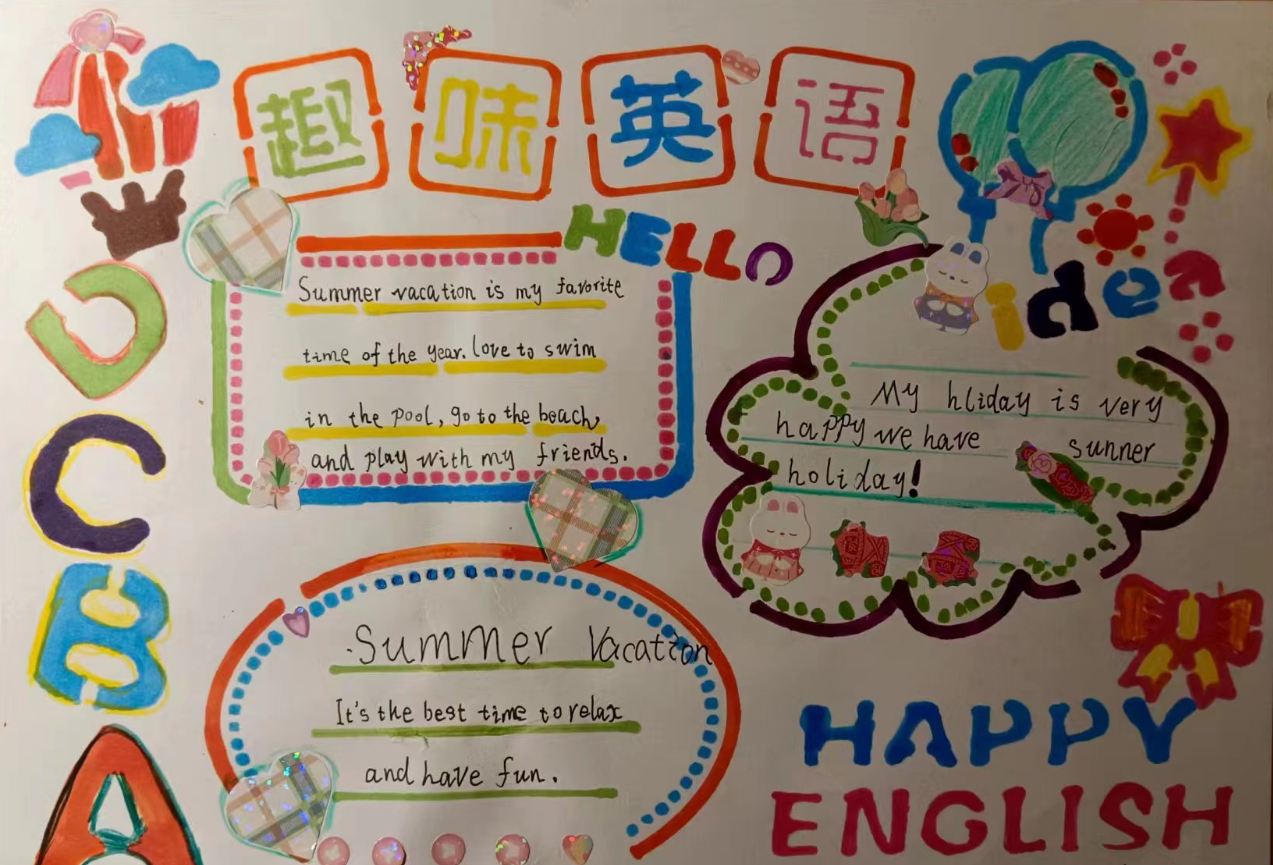 趣味英语
HELLO
Summer vacation is my favorite
time of the year. love to swim
in the pool, go to the beach,
and play with my friends.
idea
My hliday is very
happy we have sunner
holiday!
D
C
B
A
Summer Vacation
It's the best time to relax
and have fun.
HAPPY
ENGLISH